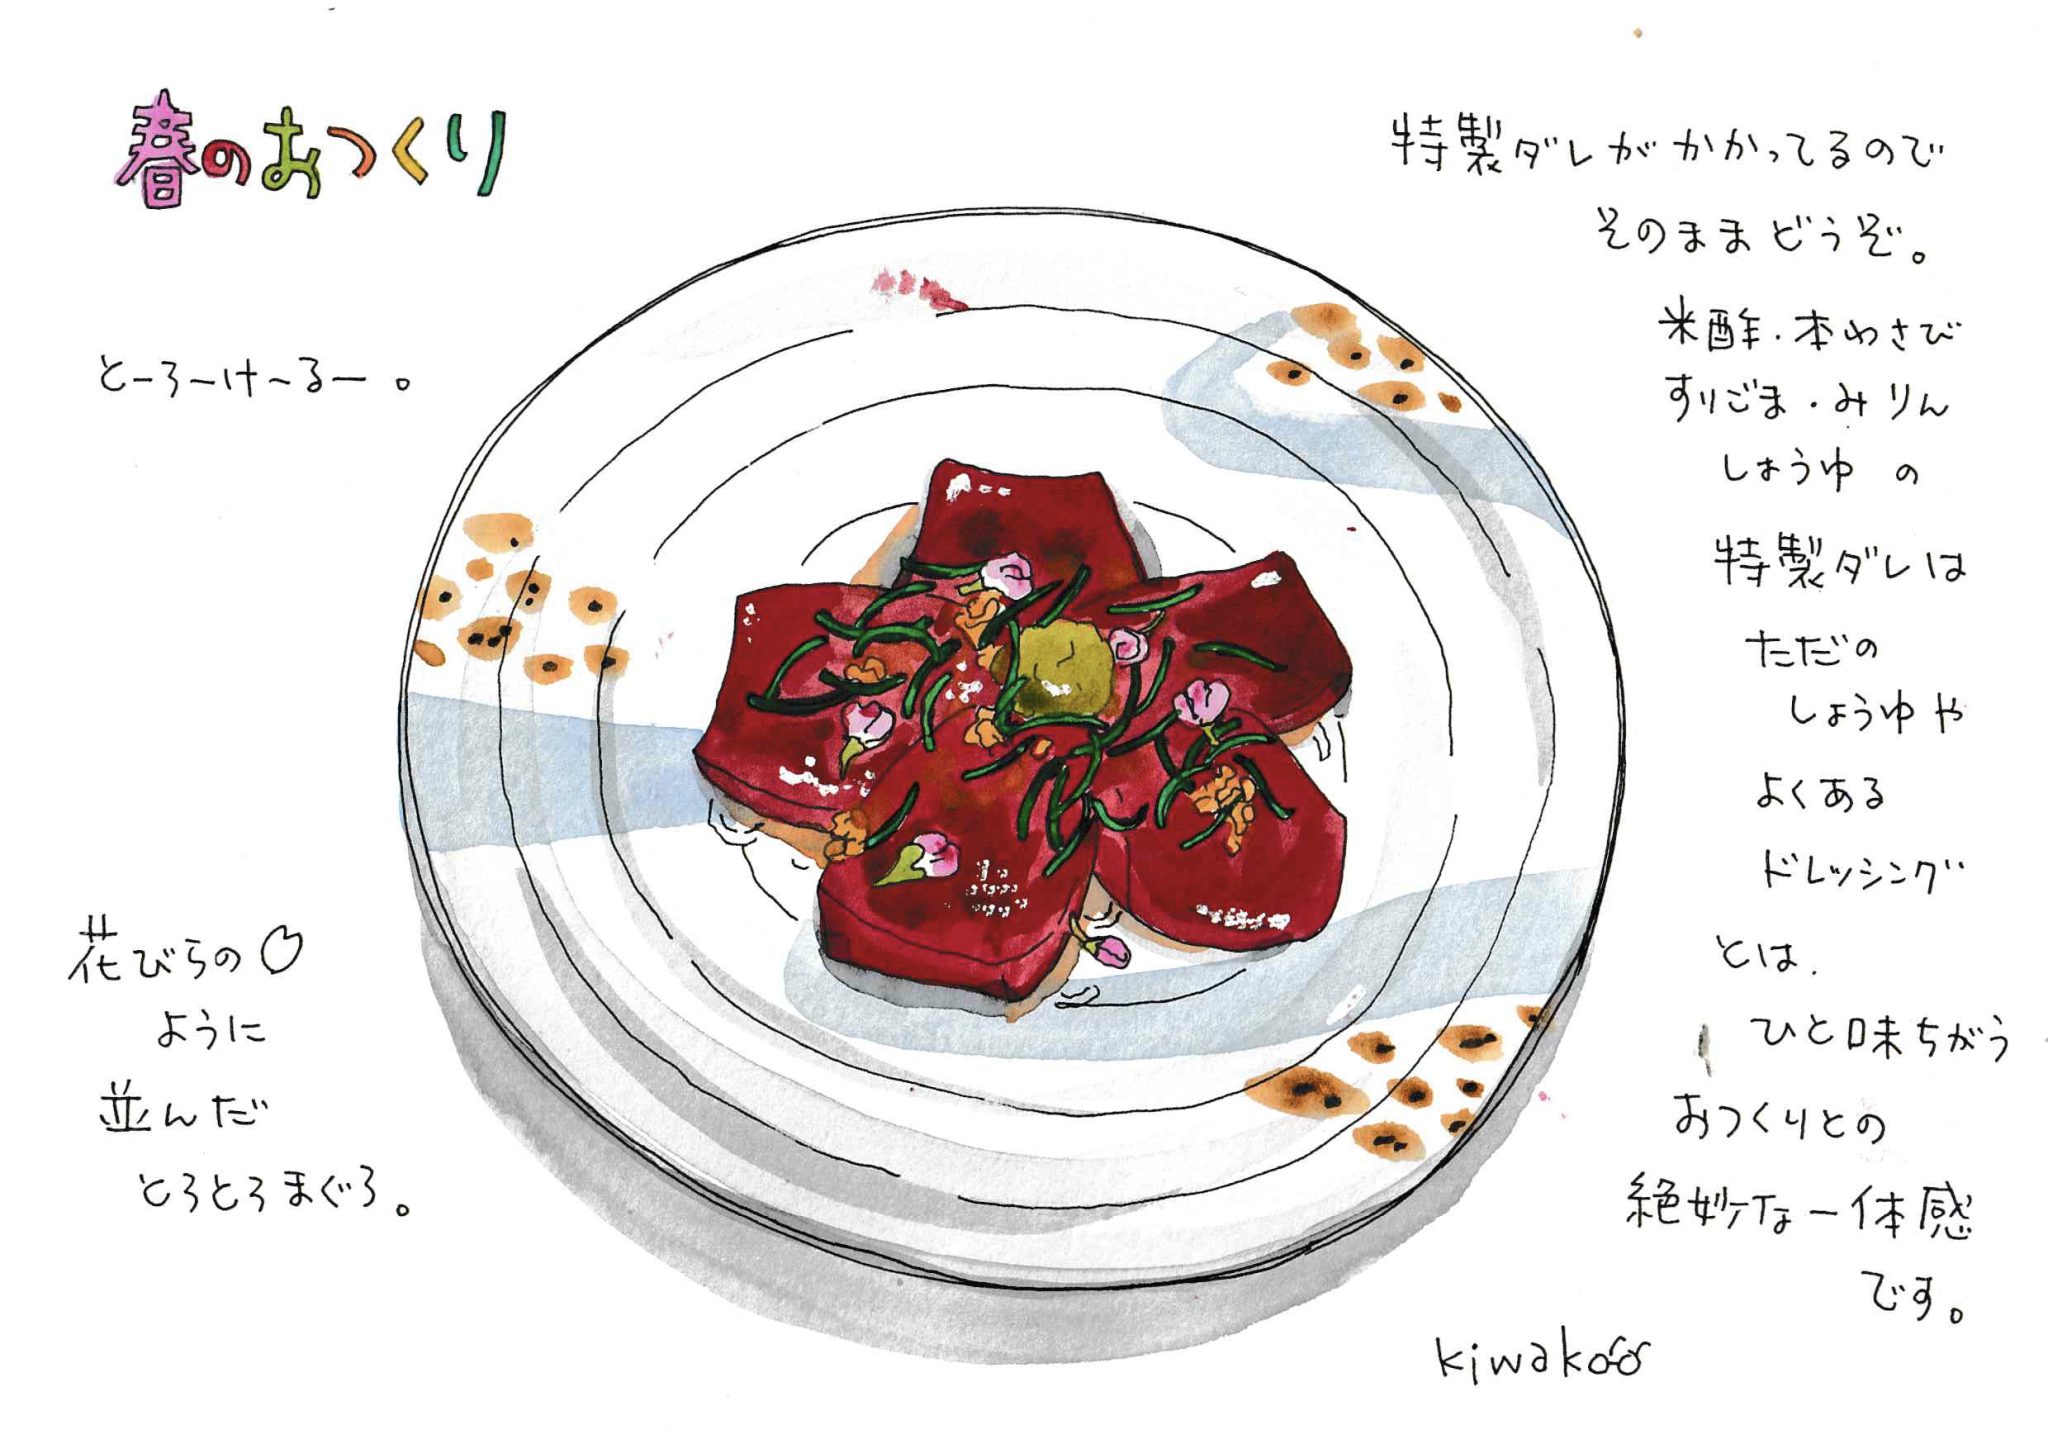 春のおつくり
とーろーけーるー。
花びらの
ように
並んだ
とろとろまぐろ。
特製ダレがかかってるので
そのままどうぞ。
米酢・本わさび
すりごま・みりん
しょうゆの
特製ダレは
ただの
しょうゆや
よくある
ドレッシング
とは、
ひと味ちがう
おつくりとの
絶妙な一体感
です。
kiwakoo